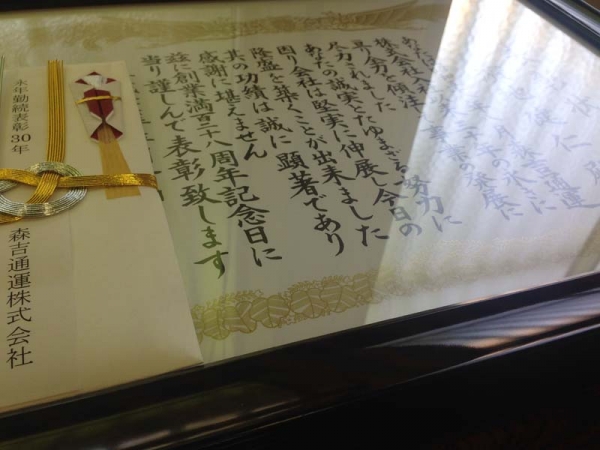 仁殿
森吉通運
株式会社入
傾注
発展に
尽力
あなたの誠実とたゆまざる努力に
因り会社は堅実に伸展し今日の
隆盛を築くことが出来ました
其の功績は誠に顕著であり
感謝に堪えません
茲に創業満百二十八周年記念日に
当り謹んで表彰致します
永年勤続表彰30年
森吉通運株式会社